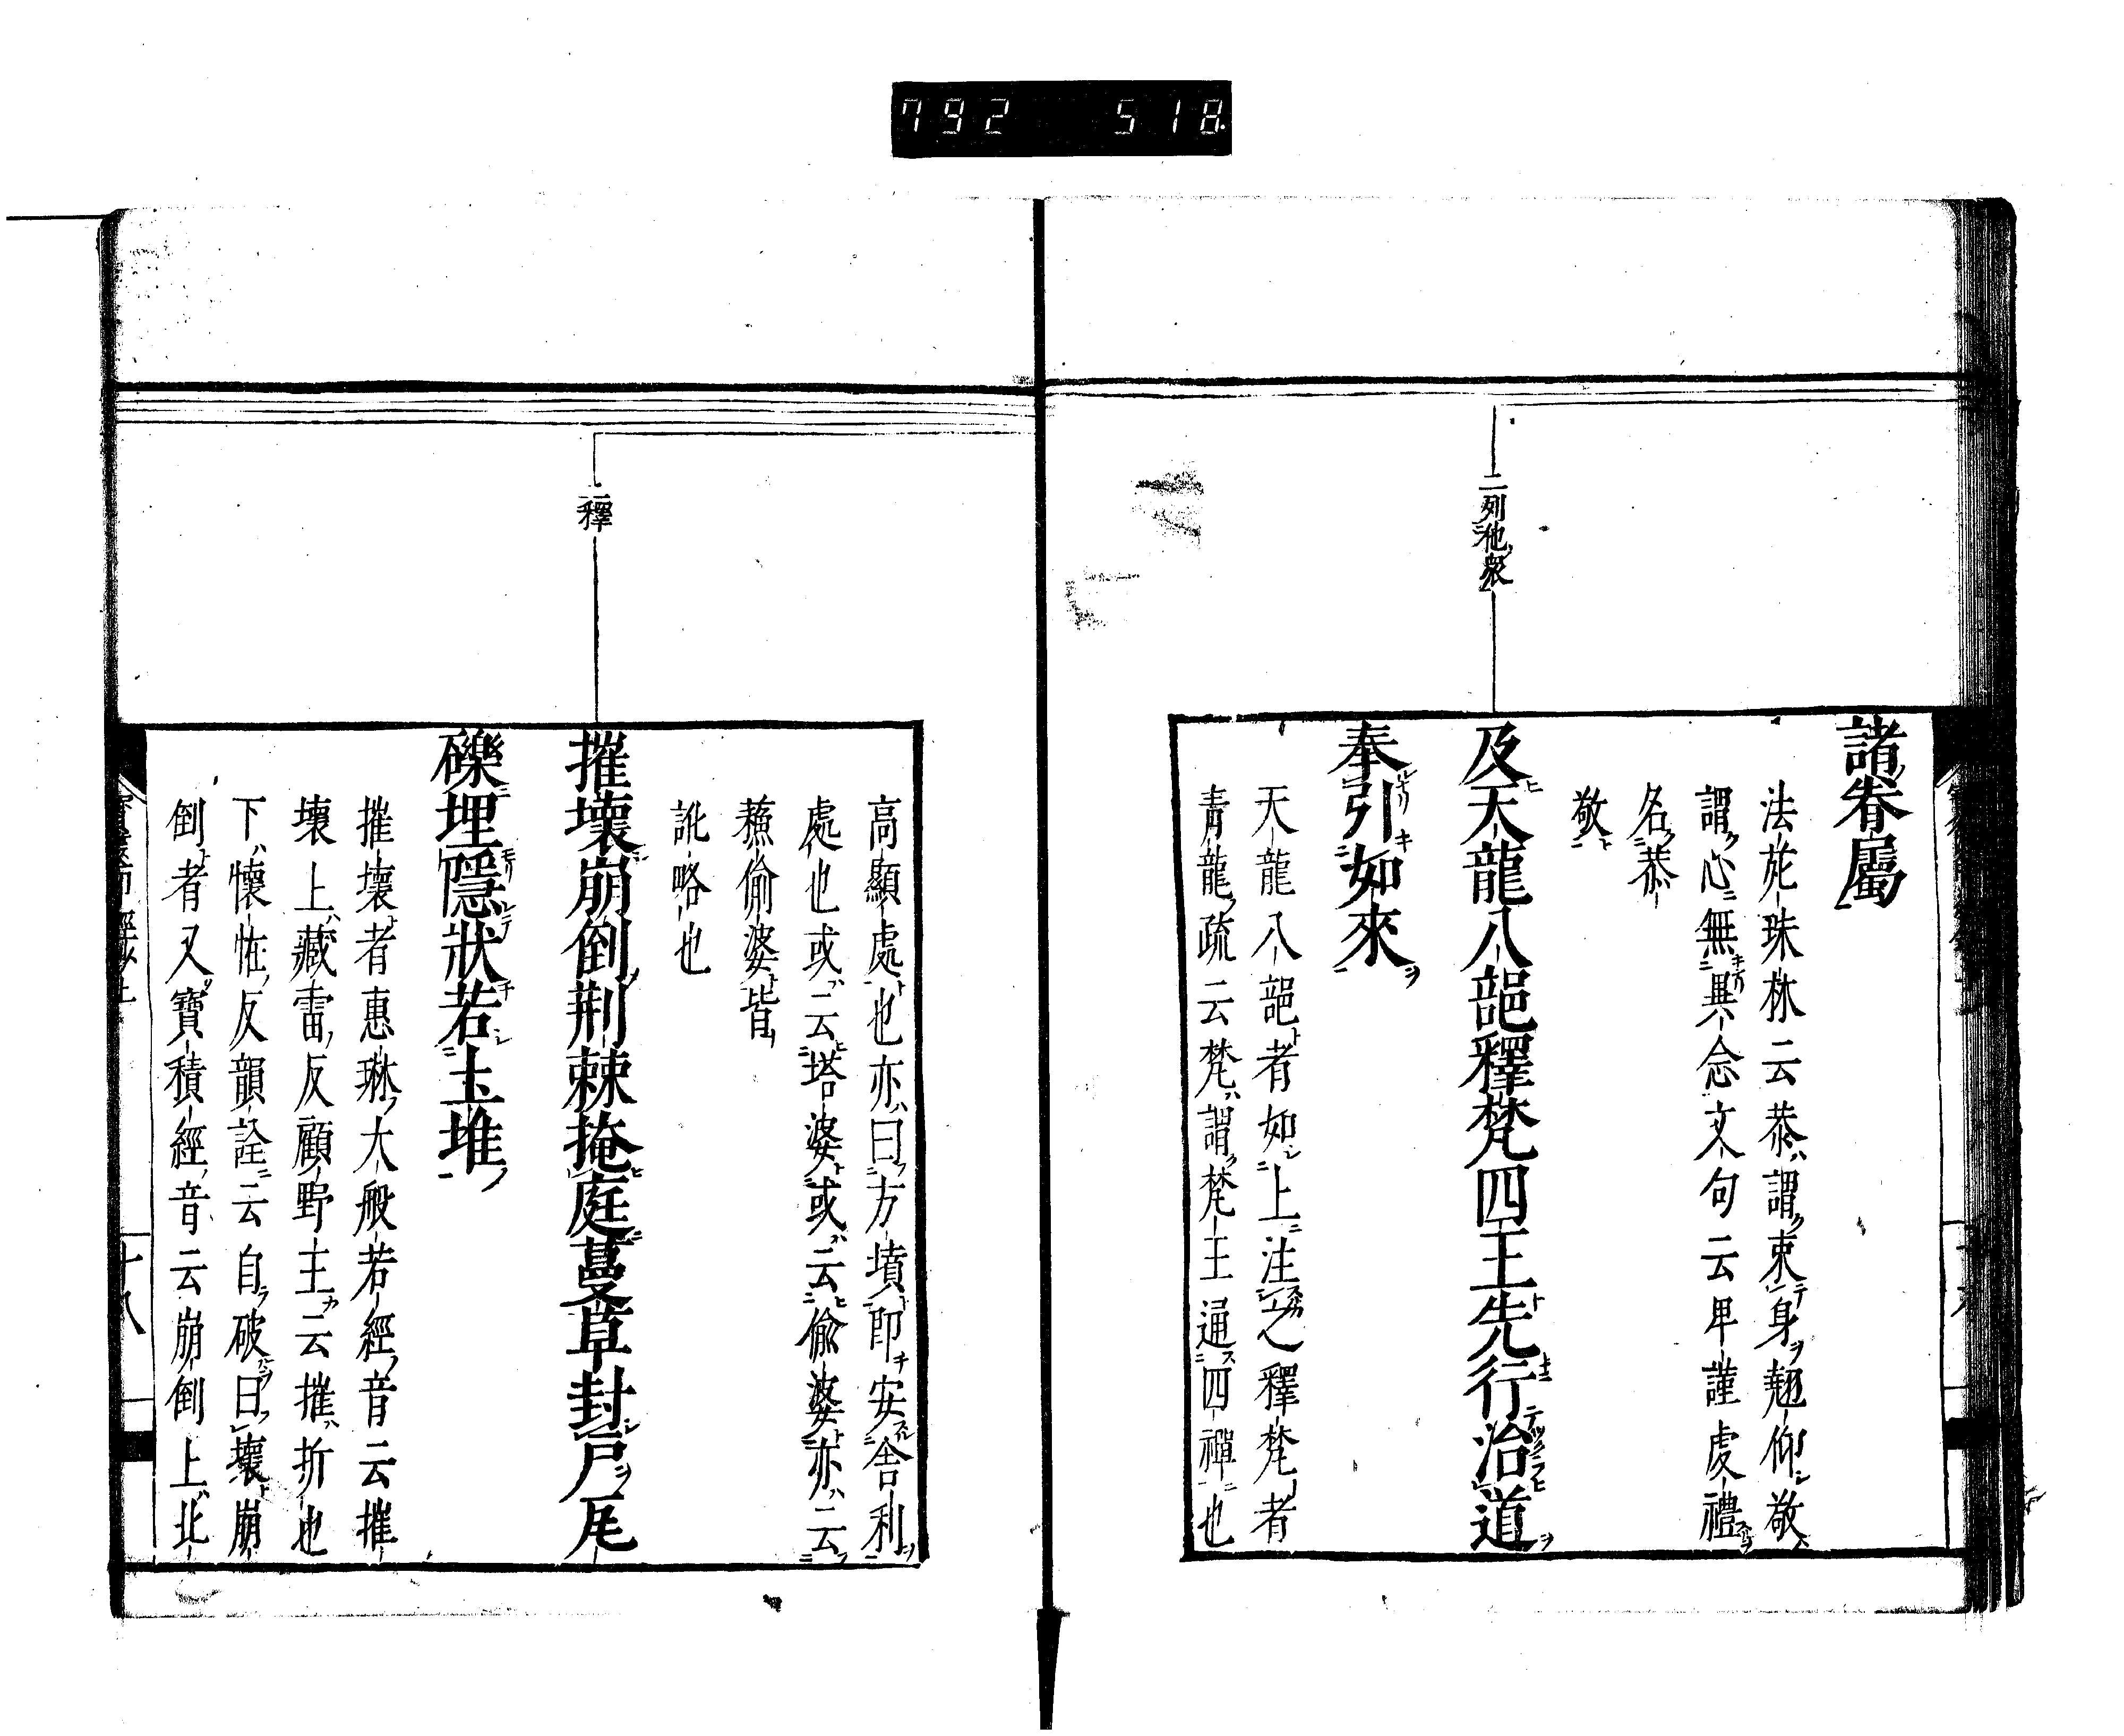 792 518
諸眷屬
法苑珠林云恭謂束身翹仰敬
謂心無異念文句云卑謹處禮
名恭
敬
二列他衆
及天龍八部釋梵四王先行治道
奉引如來
天龍八部者如上注之釋梵者
青龍疏云梵謂梵王通四禪也
高顯處也亦曰方墳即安舍利
處也或云塔婆或云偷婆亦云
蘓偷婆皆
訛略也
釋
摧壞崩倒荆棘掩庭蔓草封戸瓦
礫埋隱狀若土堆
摧壞者惠琳大般若經音云摧
壞上藏雷反顧野王云摧折也
下懷恠反韻詮云自破曰壞崩
倒者又寶積經音云崩倒上北
十八